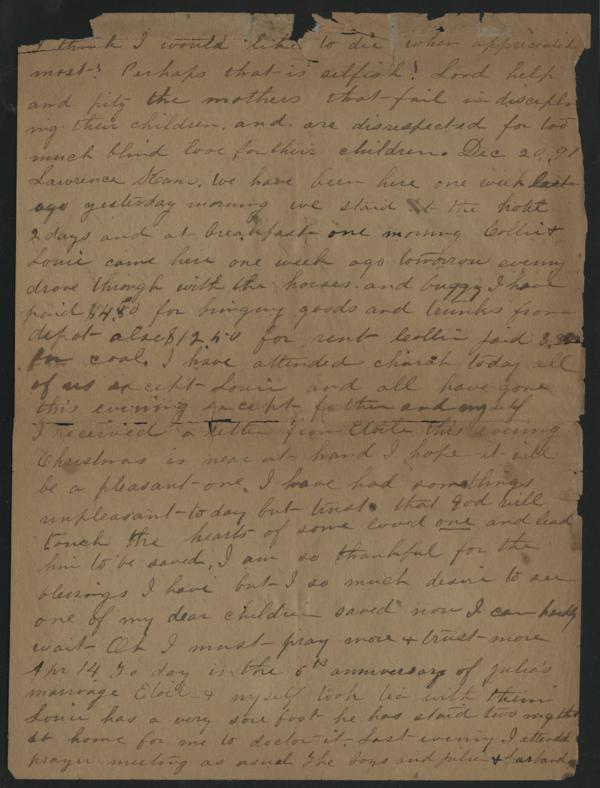 I think I would like to die when appreciated
most? Perhaps that is selfish! Lord help
and pity the mothers that fail in discipln
ing their children. and are disrespected for too
much blind love for their children. Dec 20, 91
Lawrence Kans. We have been here one week last
ago yesterday morning we staid at the hotel
2 days and at breakfast one morning Collie &
Louie came here one week ago tomorrow evening
drove through with the horses and buggy I have
paid $4.80 for bringing goods and trunks from
depot also $12.50 for rent Collie paid
for coal. I have attended church today all
of us except Louie and all have gone
this evening except father and myself
I received a letter from Eloie this evening
Christmas is near at hand I hope it will
be a pleasant one. I have had somethings
unpleasant to day but trust that God will
touch the hearts of some loved one and lead
him to be saved. I am so thankful for the
blessings I have but I so much desire to see
one of my dear children saved now I can hardly
wait Oh I must pray more & trust more
Apr 14 To day is the 6th anniversary of Julia's
marriage Eloie & myself took tea with them
Louie has a very sore foot he has staid two nights
at home for me to doctor it. Last evening I attended
prayer meeting as usual The boys and Julia & husband